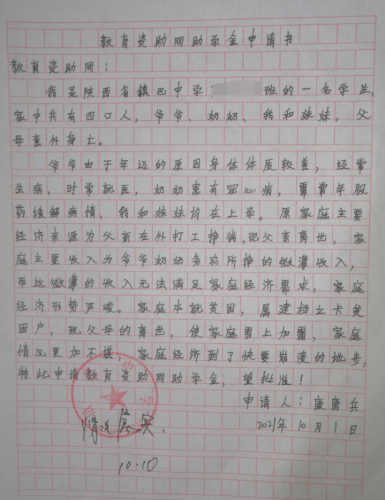 教育资助网助学金申请书
教育资助网：
我是陕西省镇巴中学 班的一名学生，
家中共有四口人，爷爷、奶奶、我和妹妹，父
母意外身亡。
爷爷由于年迈的原因身体体质较差，经常
生病，时常就医，奶奶患有冠心病，需常年服
药缓解病情，我和妹妹均在上学。原家庭主要
经济来源为父亲在外打工挣钱，现父亲离世，家
庭主要收入为爷爷奶奶务农所挣的微薄收入，
而这微薄的收入无法满足家庭经济需求，家庭
经济形势严峻。家庭本就贫困，属建档立卡贫
困户，现父母的离世，使家庭雪上加霜，家庭
情况更加不堪，家庭经济到了快要崩溃的地步，
特此申请教育资助网助学金，望批准！
申请人：康唐兵
2021年10月1日
情况属实
10.10